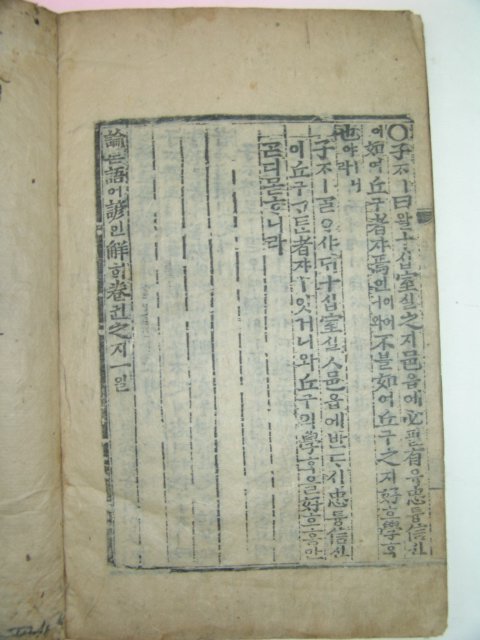 ○子ᄌᆞㅣ曰왈十십室실之지邑읍애必필有유忠튱信신
이如여丘구者쟈ㅣ焉언이어니와不블如여丘구之지好호學ᄒᆞᆨ
也야ㅣ니라
子ᄌᆞㅣᄀᆞᆯᄋᆞ샤ᄃᆡ十십室실人邑읍에반ᄃᆞ시忠튱信신
이丘구ᄀᆞᄐᆞᆫ者쟈ㅣ잇거니와丘구의學ᄒᆞᆨ을好호홈만
ᄀᆞᆮ디몯ᄒᆞ니라
論론語어諺언解ᄒᆡ卷권之지一일